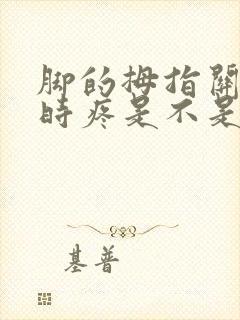 脚的拇指關
時疼是不是
基普